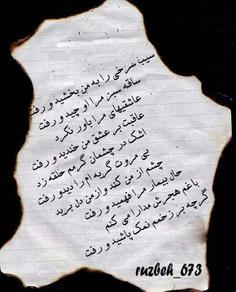 سیب سرخی را به من بخشید و رفت
ساقه سبز مرا او چید و رفت
عاشقیهای مرا باور نکرد
عاقبت بر عشق من خندید و رفت
اشک در چشمان گرمم حلقه زد
بی مروت گریه ام را دید و رفت
چشم از من کند و از من دل برید
حال بیمار مرا فهمید و رفت
با غم هجرش مدارا می کنم
گر چه بر زخمم نمک پاشید و رفت
ruzbeh_673